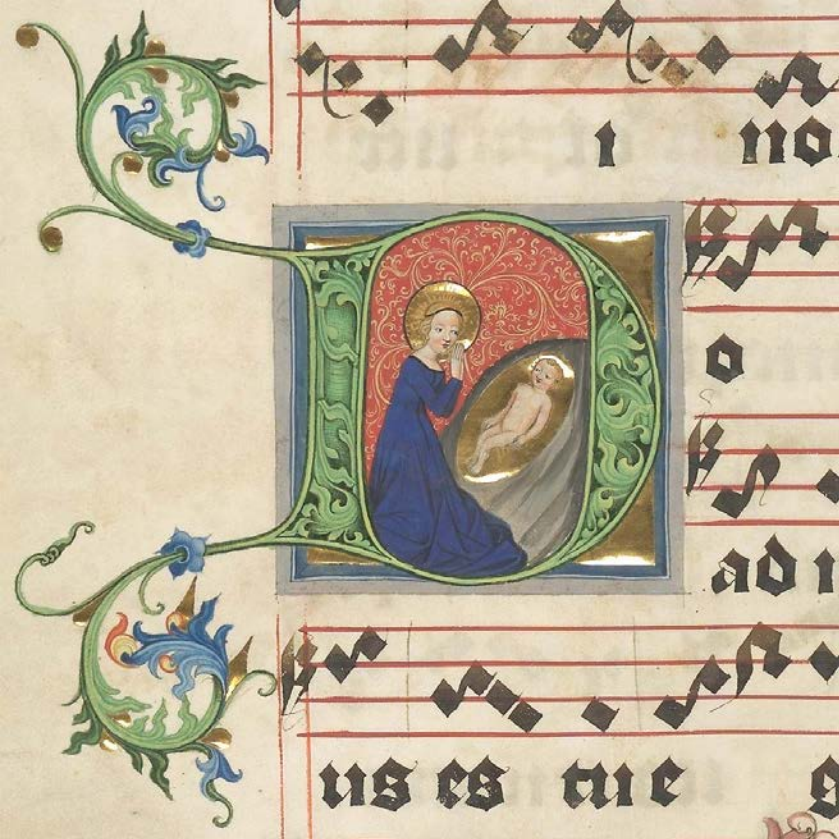 ı no
D o
adı
us es tu e g